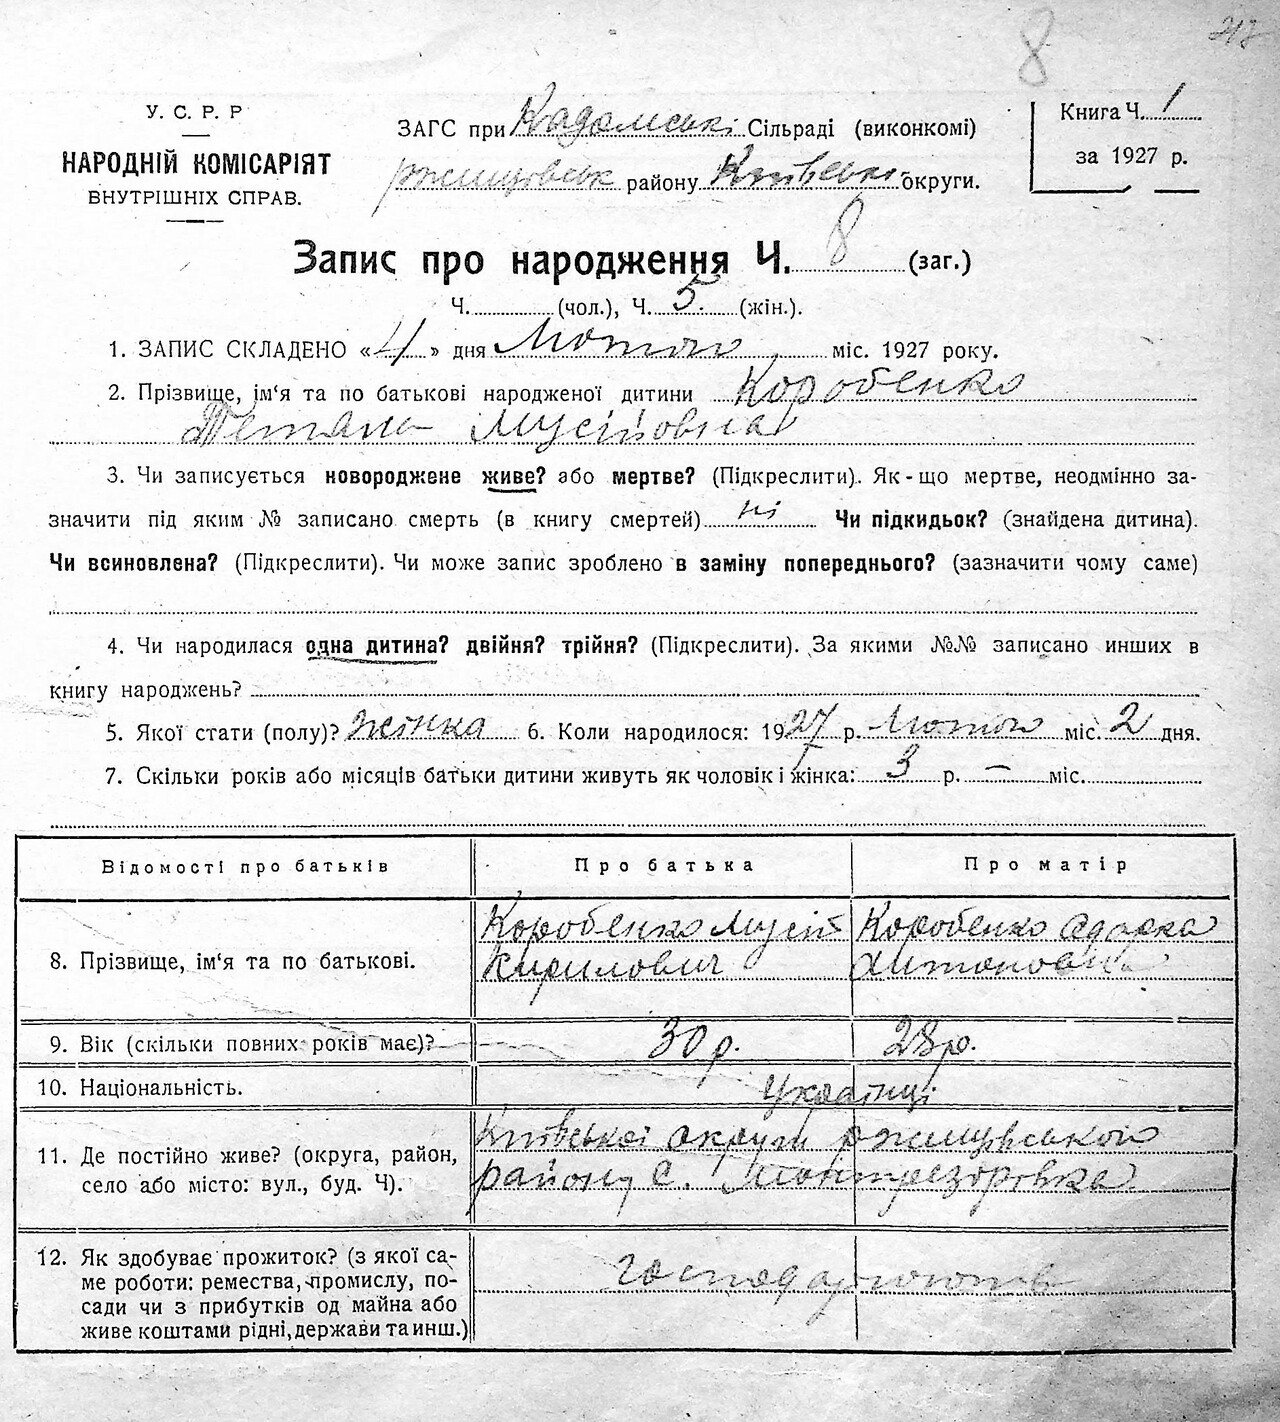 8
У. С. Р. Р
НАРОДНІЙ КОМІСАРІЯТ
ВНУТРІШНІХ СПРАВ.
ЗАГС при Кадомські Сільраді (виконкомі)
ржищовськ району Київські округи.
Книга Ч. 1
за 1927 р.
Запис про народження Ч. 8 (заг.)
Ч. (чол.), Ч. 5. (жін.).
1. ЗАПИС СКЛАДЕНО «4» дня Лютого міс. 1927 року.
2. Прізвище, ім'я та по батькові народженої дитини Коробенко
Тетяна Мусіївна
3. Чи записується новороджене живе? або мертве? (Підкреслити). Як-що мертве, неодмінно за-
значити під яким № записано смерть (в книгу смертей) ні Чи підкидьок? (знайдена дитина).
Чи всиновлена? (Підкреслити). Чи може запис зроблено в заміну попереднього? (зазначити чому саме)
4. Чи народилася одна дитина? двійня? трійня? (Підкреслити). За якими №№ записано инших в
книгу народжень?
5. Якої стати (полу)? жінка 6. Коли народилося: 1927 р. Лютого міс. 2 дня.
7. Скільки років або місяців батьки дитини живуть як чоловік і жінка: 3 р. — міс.
Відомості про батьків Про батька Про матір
8. Прізвище, ім'я та по батькові. Коробенко Мусій Кирилович Коробенко Одарка Антоновна
9. Вік (скільки повних років має)? 30 р. 28 р.
10. Національність. Українці
11. Де постійно живе? (округа, район,
село або місто: вул., буд. Ч).
Київської округи ржищовського
району с. Монтрезоровка
12. Як здобуває прожиток? (з якої са-
ме роботи: ремества, промислу, по-
сади чи з прибутків од майна або
живе коштами рідні, держави та инш.)
господарюють